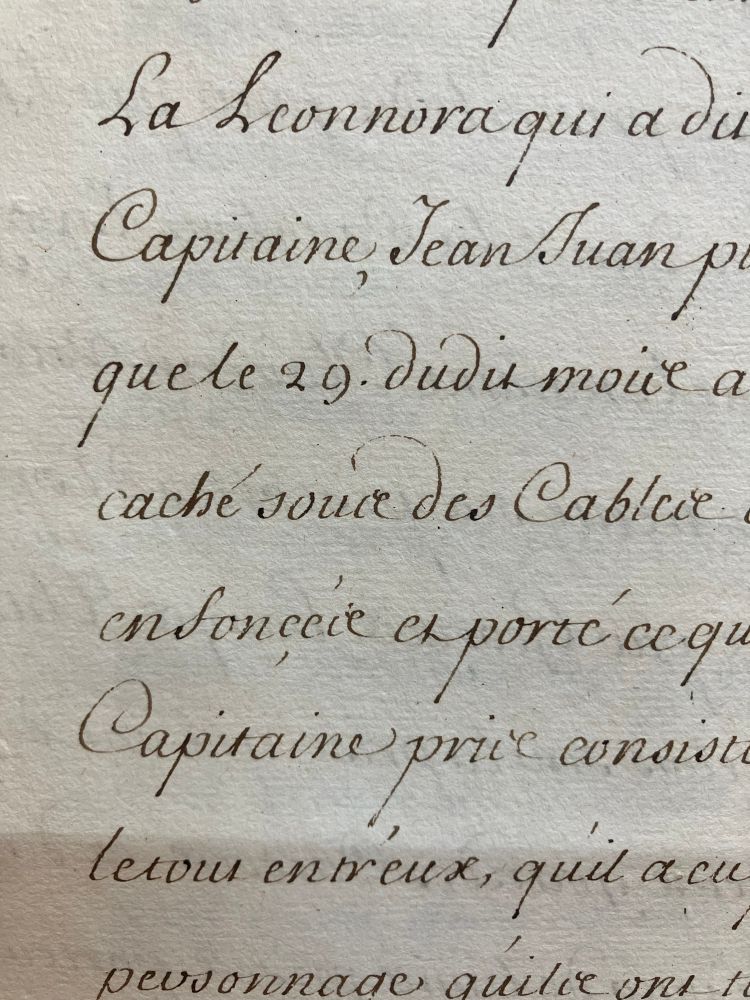 La Leonnora qui a dit
Capitaine, Jean Juan
que le 29. dudit mois a
caché sous des Cables
enfonçées et porté ce qu
Capitaine pris consist
le tout entr'eux, qu'il a eu
personnage qu'ils ont t